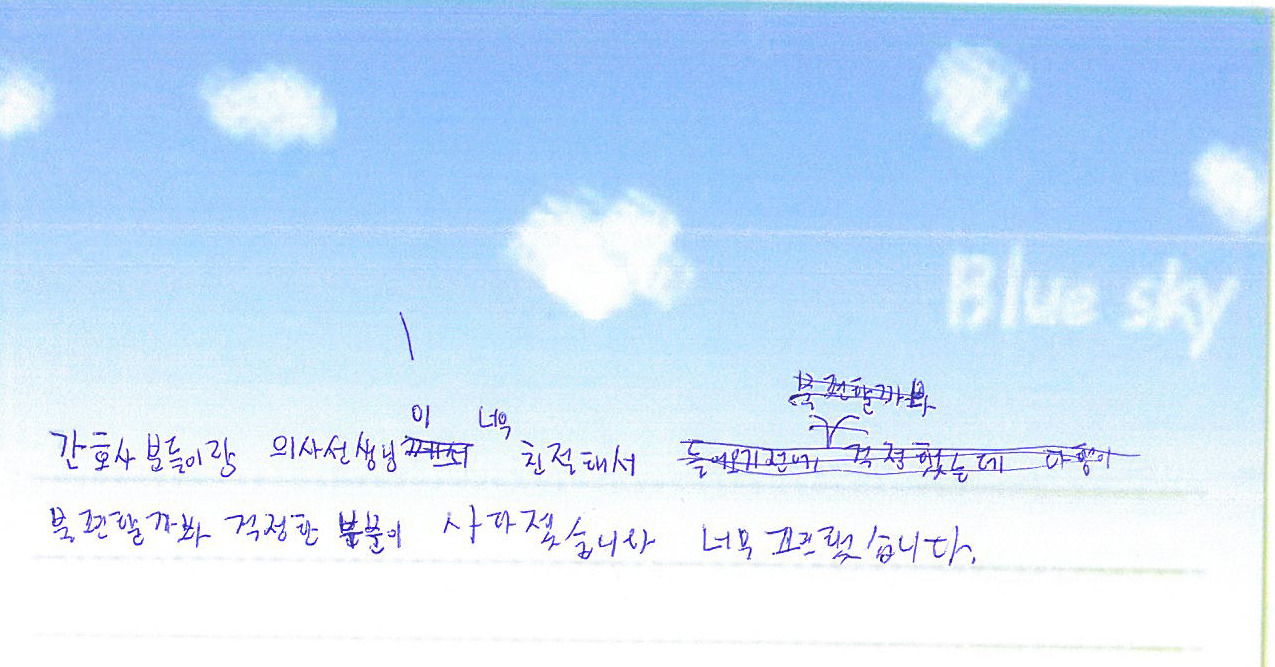 Blue sky
간호사 분들이랑 의사선생님이 너무 친절해서
불편할까봐 걱정한 부분이 사라졌습니다 너무 편했습니다.